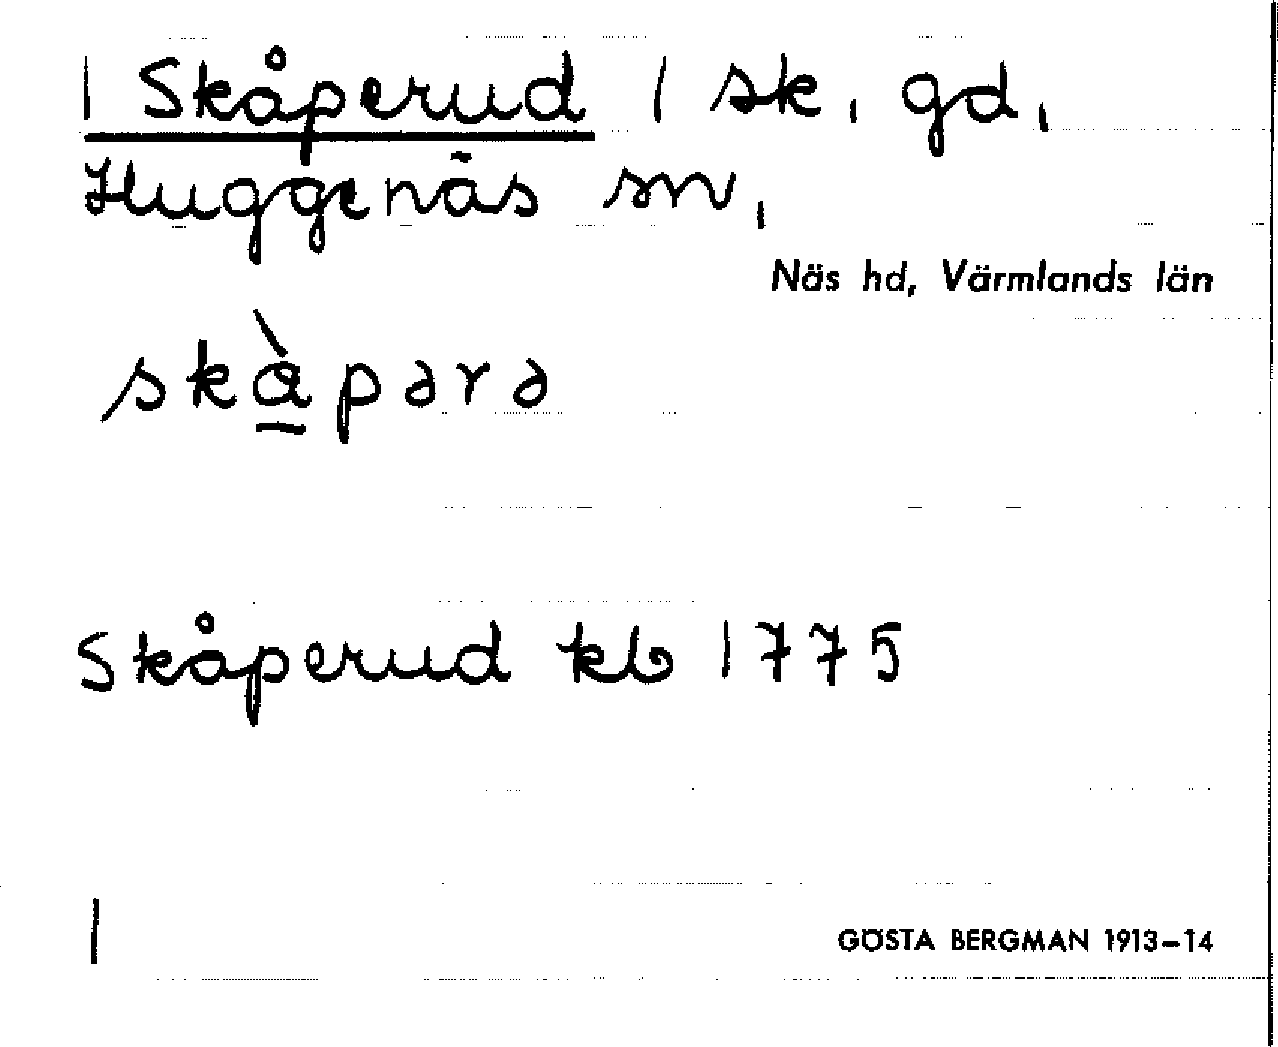 | Skåperud | sk. gd.
Huggenäs sn.
Näs hd, Värmlands län
skàpərə
Skåperud kb 1775
GÖSTA BERGMAN 1913–14